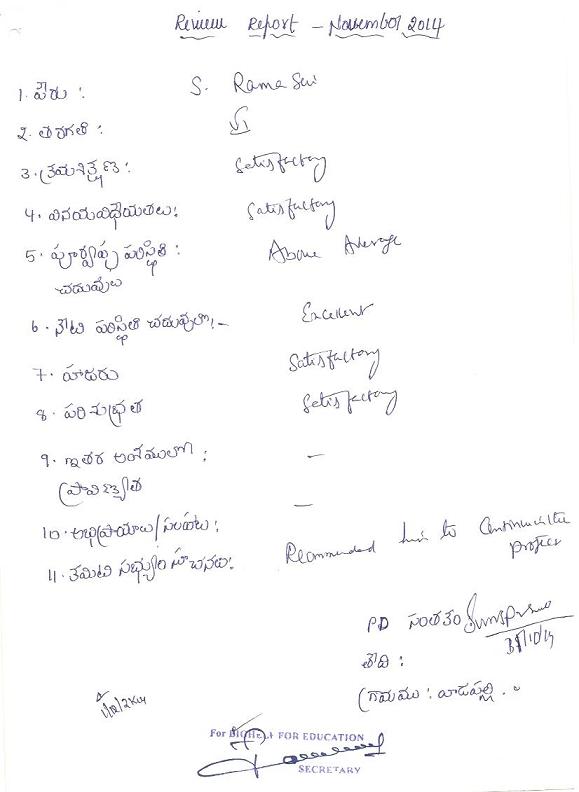 Review Report - November 2014
1. పేరు : S. Rama Sri
2. తరగతి : VI
3. క్రమశిక్షణ : Satisfactory
4. వినయవిధేయతలు : Satisfactory
5. పూర్వపు పరిస్థితి : Above Average
చదువుల
6. నేటి పరిస్థితి చదువులో :- Excellent
7. హాజరు Satisfactory
8. పరిశుభ్రత Satisfactory
9. ఇతర అంశములలో : -
ప్రావిణ్యత -
10. అభిప్రాయాలు/సలహాలు :
11. కమిటి సభ్యుల సూచనలు : Recommended him to Continue in the
project
PD సంతకం
తేది :
గ్రామము : వాడపల్లి .
For BIGHELP FOR EDUCATION
SECRETARY